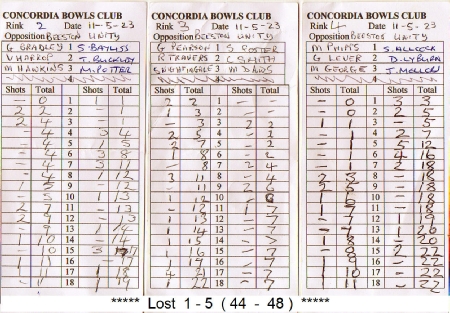 CONCORDIA BOWLS CLUB
Rink 2 Date 11-5-23
Opposition BEESTON UNITY
G BRADLEY 1 S BAYLISS
V HARROP 2 T. BUCKLEY
M HAWKINS 3 M. POTTER
4
Shots Total Shots Total
- 0 1 1 1
2 2 2 - 1
2 4 3 - 1
- 4 4 3 4
- 4 5 1 5
- 4 6 3 8
- 4 7 3 11
- 4 8 1 12
1 5 9 - 12
- 5 10 1 13
2 7 11 - 13
2 9 12 - 13
- 9 13 1 14
1 10 14 - 14
- 10 15 3 17
1 11 16 - 17
- 11 17 1 18
- 11 18 1 19
CONCORDIA BOWLS CLUB
Rink 3 Date 11-5-23
Opposition BEESTON UNITY
G PEARSON 1 S FOSTER
R TRAVERS 2 C SMITH
S NIGHTINGALE 3 M DAWS
4
Shots Total Shots Total
2 2 1 - -
1 3 2 - -
- 3 3 2 2
2 5 4 - 2
2 7 5 - 2
1 8 6 - 2
- 8 7 2 4
3 11 8 - 4
- 11 9 2 6
1 12 10 - 6
- 12 11 1 7
1 13 12 - 7
1 14 13 - 7
1 15 14 - 7
1 16 15 - 7
1 17 16 - 7
4 21 17 - 7
1 22 18 - 7
CONCORDIA BOWLS CLUB
Rink 4 Date 11-5-23
Opposition BEESTON UNITY
M PHIPPS 1 S. ALLCOCK
G LEVER 2 D. LYBURN
M GEORGE 3 J. MELLORS
4
Shots Total Shots Total
- 0 1 3 3
- 0 2 2 5
1 1 3 - 5
- 1 4 2 7
- 1 5 5 12
- 1 6 4 16
- 1 7 2 18
2 3 8 - 18
2 5 9 - 18
1 6 10 - 18
1 7 11 - 18
- 7 12 1 19
- 7 13 1 20
1 8 14 - 20
- 8 15 2 22
1 9 16 - 22
1 10 17 - 22
1 11 18 - 22
***** Lost 1 - 5 ( 44 - 48 ) *****